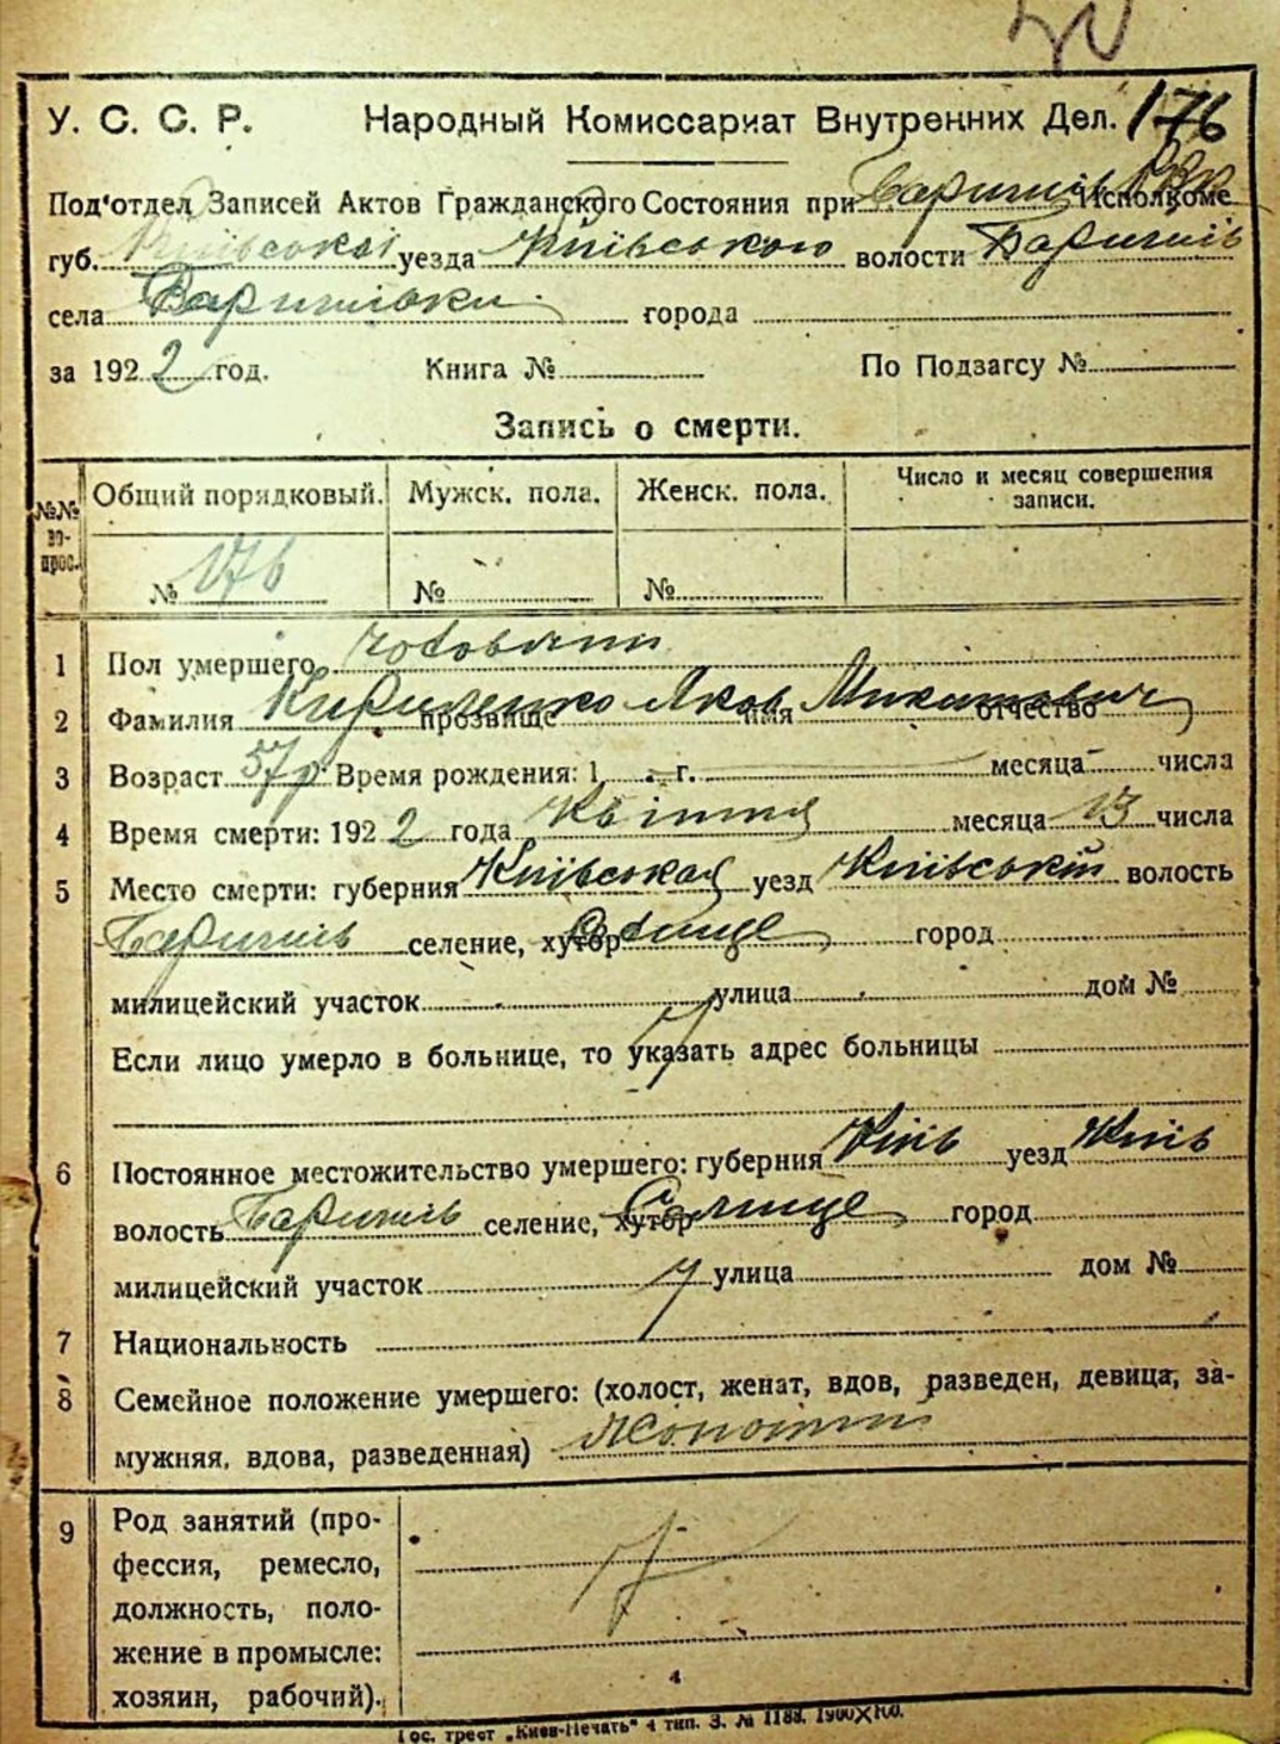 У. С. С. Р. Народный Комиссариат Внутренних Дел. 176
Под'отдел Записей Актов Гражданского Состояния при Баришів Исполкоме
губ. Київської уезда Київського волости Баришів
села Баришівки города
за 1922 год. Книга № По Подзагсу №
Запись о смерти.
№№ во-прос. Общий порядковый. Мужск. пола. Женск. пола. Число и месяц совершения записи.
№ 176 № №
1 Пол умершего чоловічий
2 Фамилия Кириленко прозвище имя Яков отчество Микитович
3 Возраст 57 р. Время рождения: 1 г. месяца числа
4 Время смерти: 1922 года Квітня месяца 13 числа
5 Место смерти: губерния Київская уезд Київський волость
Баришів селение, хутор город
милицейский участок улица дом №
Если лицо умерло в больнице, то указать адрес больницы
6 Постоянное местожительство умершего: губерния Київ уезд Київ
волость Баришів селение, хутор город
милицейский участок улица дом №
7 Национальность
8 Семейное положение умершего: (холост, женат, вдов, разведен, девица, за-
мужняя, вдова, разведенная)
9 Род занятий (про-
фессия, ремесло,
должность, поло-
жение в промысле:
хозяин, рабочий).
4
Гос. трест „Киев-Печать" 4 тип. З. № 1188. 1900×100.